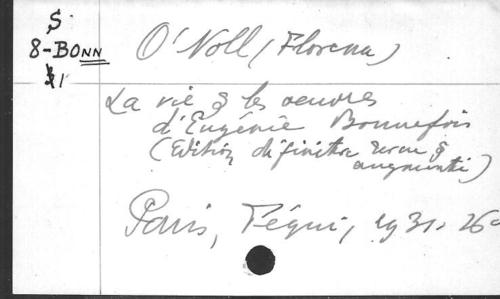 S
8-BONN
1
O'Noll (Florena)
La vie & les oeuvres
d'Eugénie Bonnefois
(Edition définitive revue &
augmentée)
Paris, Téqui, 1931. 26